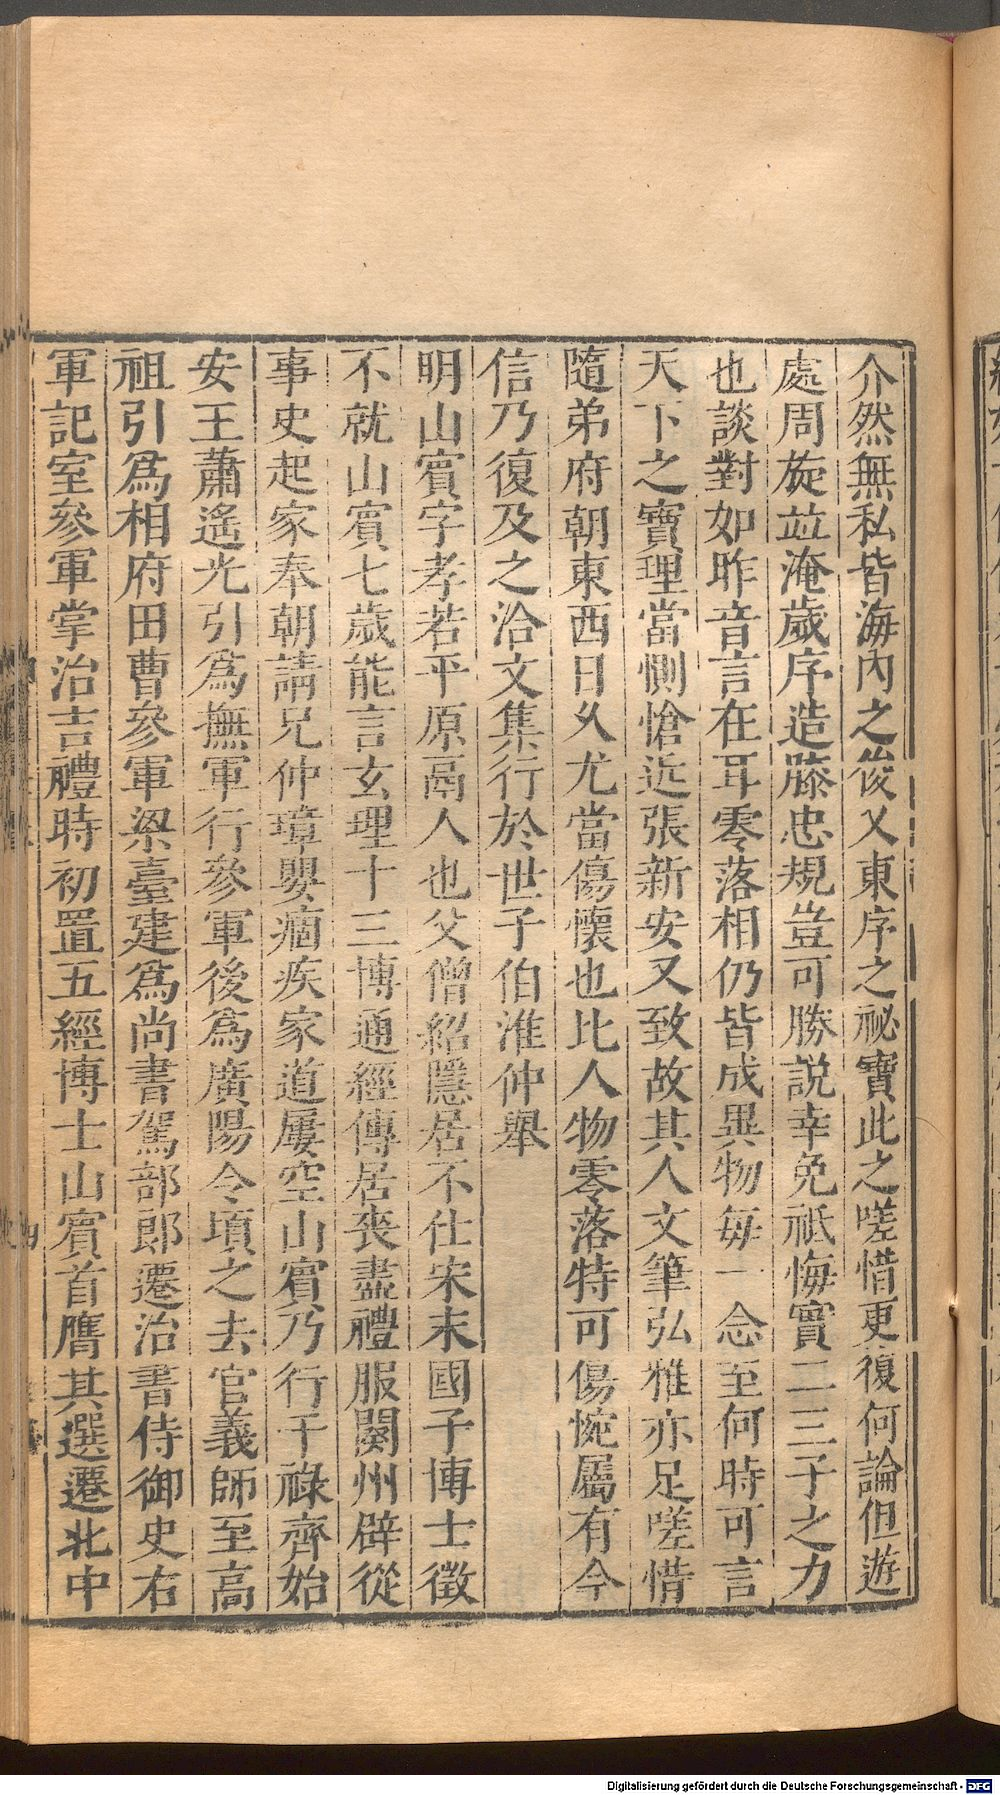 介然無私皆海內之俊乂東序之祕寶此之嗟惜更復何論但遊
處周旋竝淹歲序造膝忠規豈可勝說幸免祗悔實二三子之力
也談對如昨音言在耳零落相仍皆成異物每一念至何時可言
天下之寶理當惻愴近張新安又致故其人文筆弘雅亦足嗟惜
隨弟府朝東西日久尤當傷懷也比人物零落特可傷惋屬有今
信乃復及之洽文集行於世子伯淮仲舉
明山賓字孝若平原鬲人也父僧紹隱居不仕宋末國子博士徵
不就山賓七歲能言玄理十三博通經傳居喪盡禮服闋州辟從
事史起家奉朝請兄仲璋嬰痼疾家道屢空山賓乃行干祿齊始
安王蕭遙光引爲撫軍行參軍後爲廣陽令頃之去官義師至高
祖引爲相府田曹參軍梁臺建爲尚書駕部郎遷治書侍御史右
軍記室參軍掌治吉禮時初置五經博士山賓首膺其選遷北中
Digitalisierung gefördert durch die Deutsche Forschungsgemeinschaft - DFG